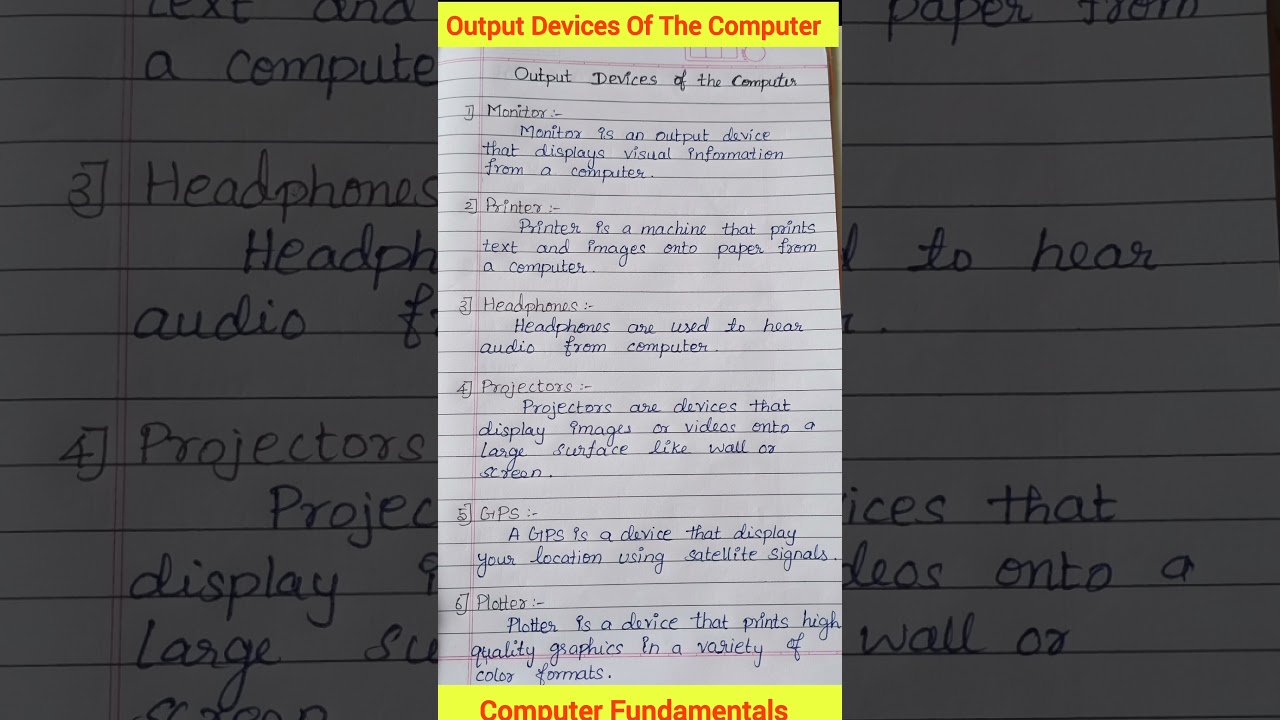 Output Devices Of The Computer
Output Devices of the Computer
1] Monitor:-
Monitor is an output device
that displays visual information
from a computer.
2] Printer:-
Printer is a machine that prints
text and images onto paper from
a computer.
3] Headphones:-
Headphones are used to hear
audio from computer.
4] Projectors:-
Projectors are devices that
display images or videos onto a
large surface like wall or
screen.
5] GPS:-
A GPS is a device that display
your location using satellite signals.
6] Plotter:-
Plotter is a device that prints high
quality graphics in a variety of
color formats.
Computer Fundamentals
text and
paper from
a compute
3] Headphones
Headph
to hear
audio
4] Projectors
Projec
ices that
display
deos onto a
large su
wall or
screen